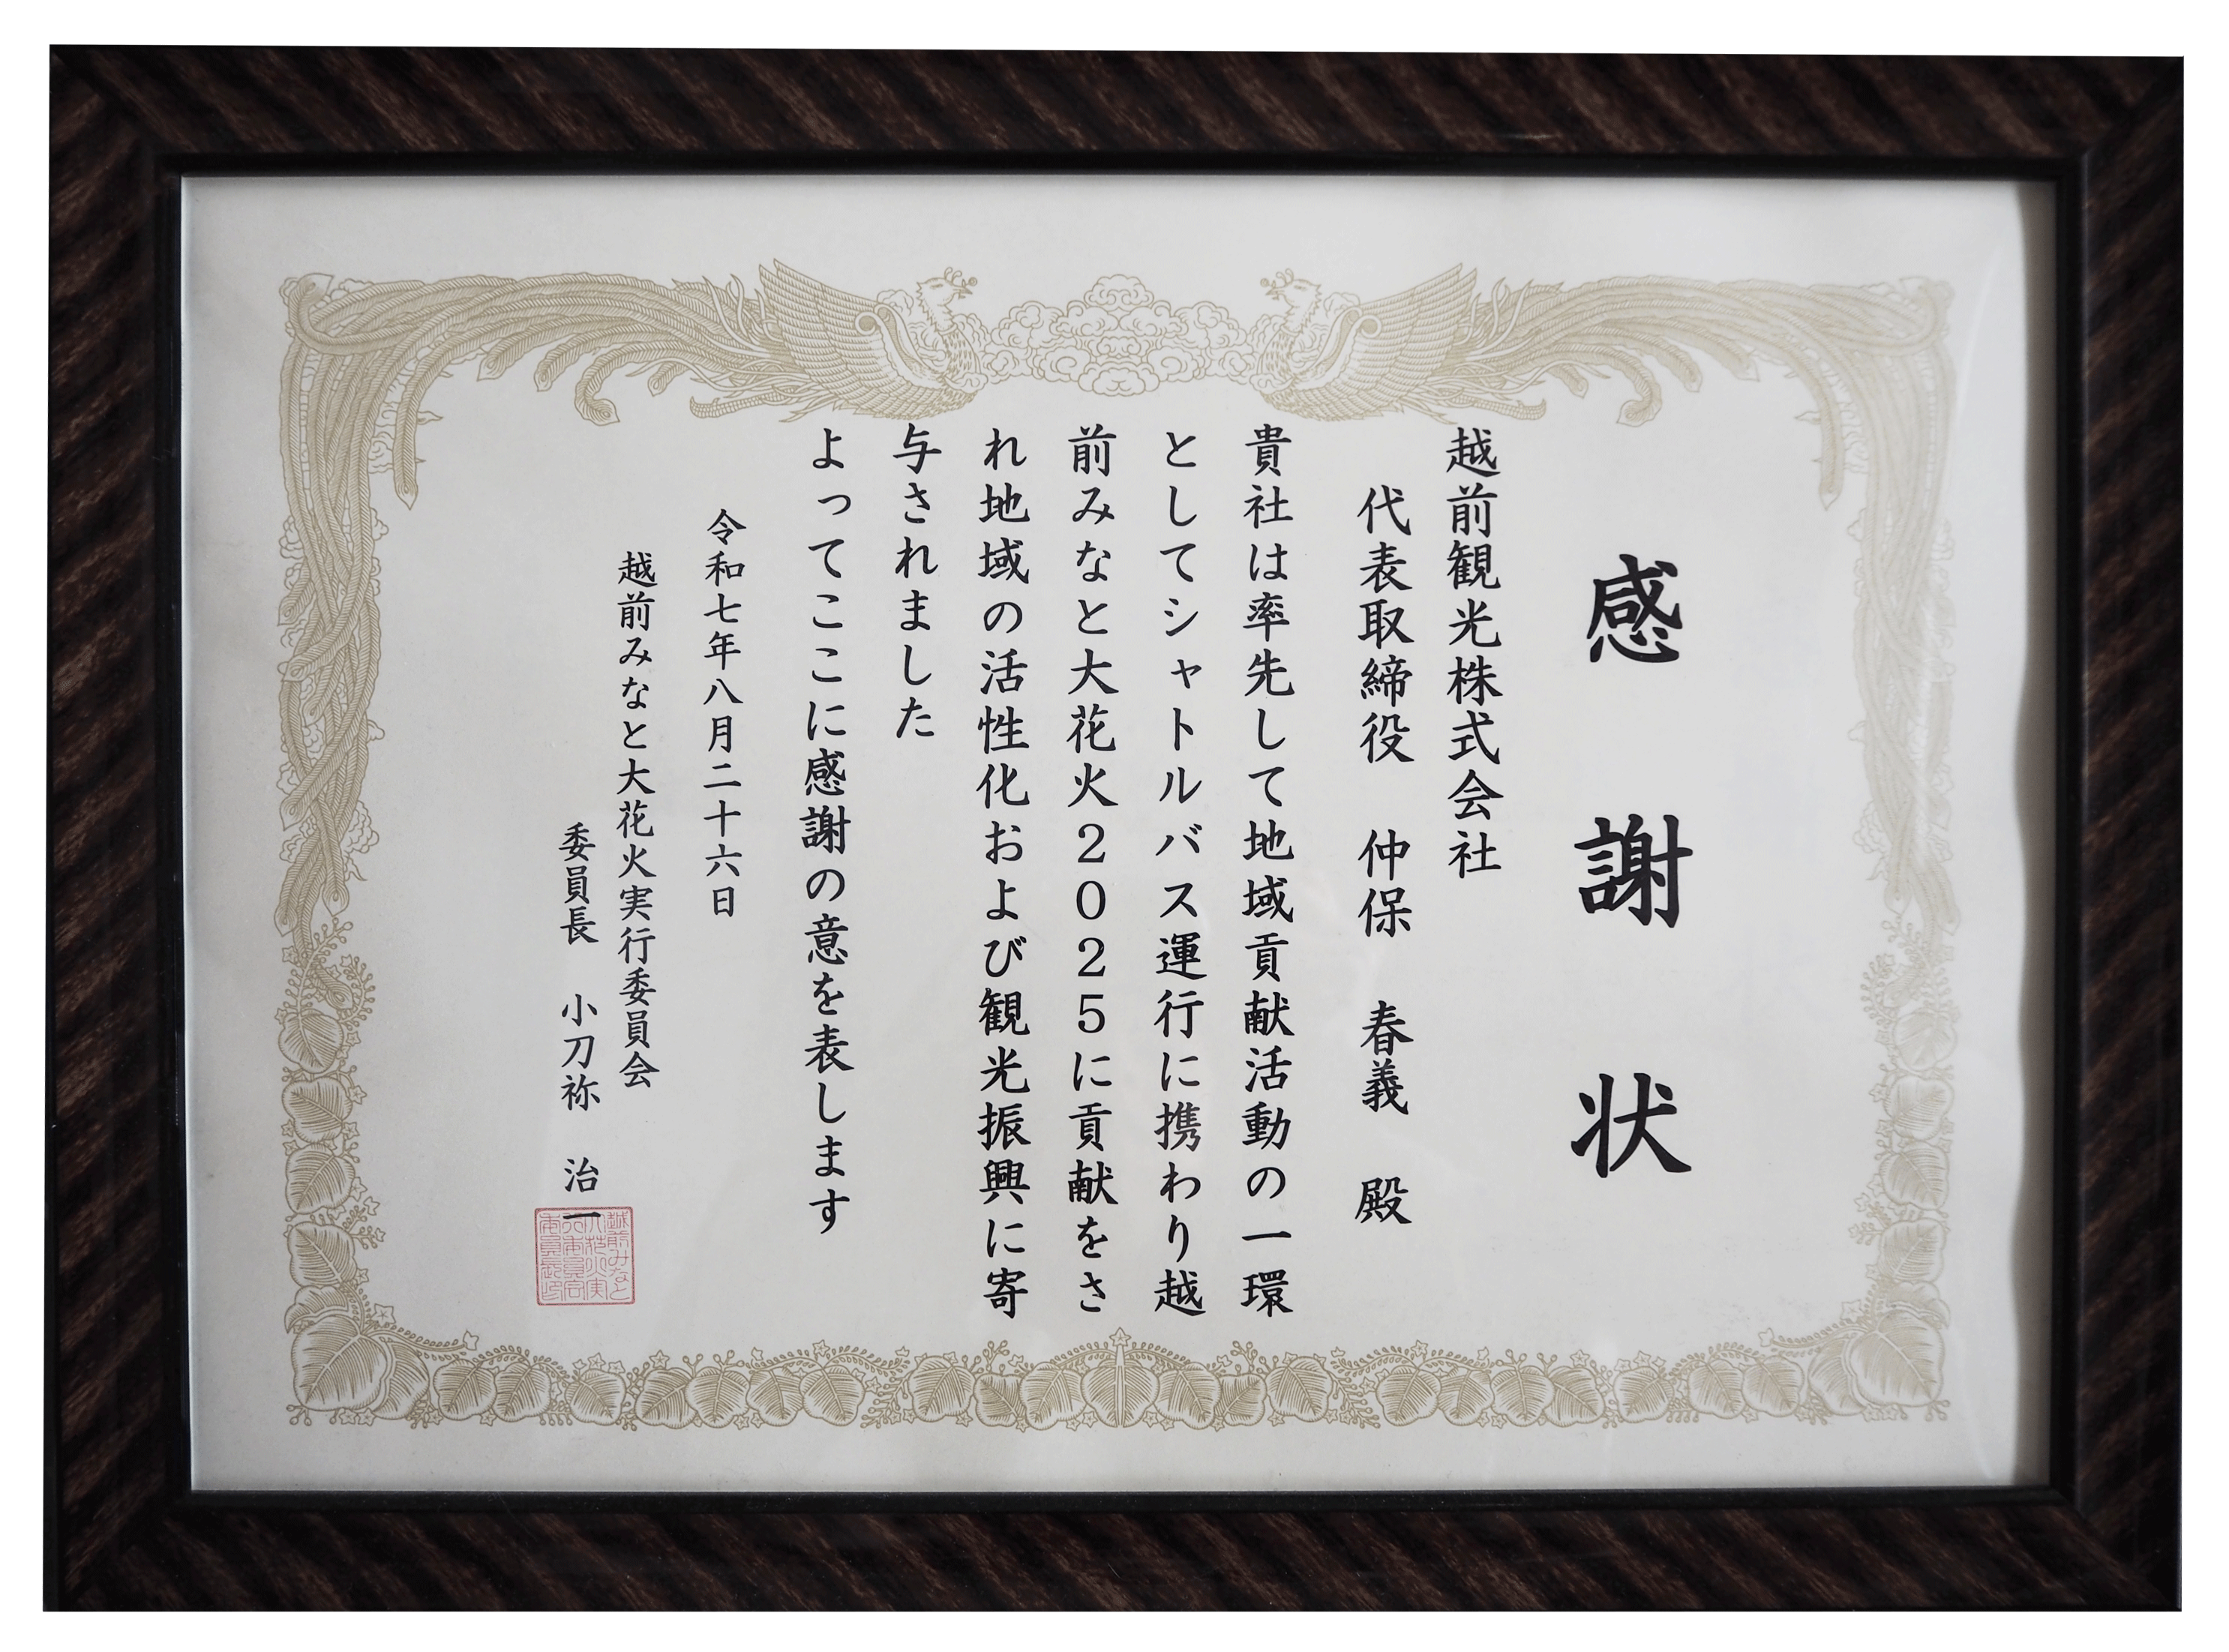 感謝状
越前観光株式会社
代表取締役 仲保 春義 殿
貴社は率先して地域貢献活動の一環
としてシャトルバス運行に携わり越
前みなと大花火2025に貢献をさ
れ地域の活性化および観光振興に寄
与されました
よってここに感謝の意を表します
令和七年八月二十六日
越前みなと大花火実行委員会
委員長 小刀祢 治一